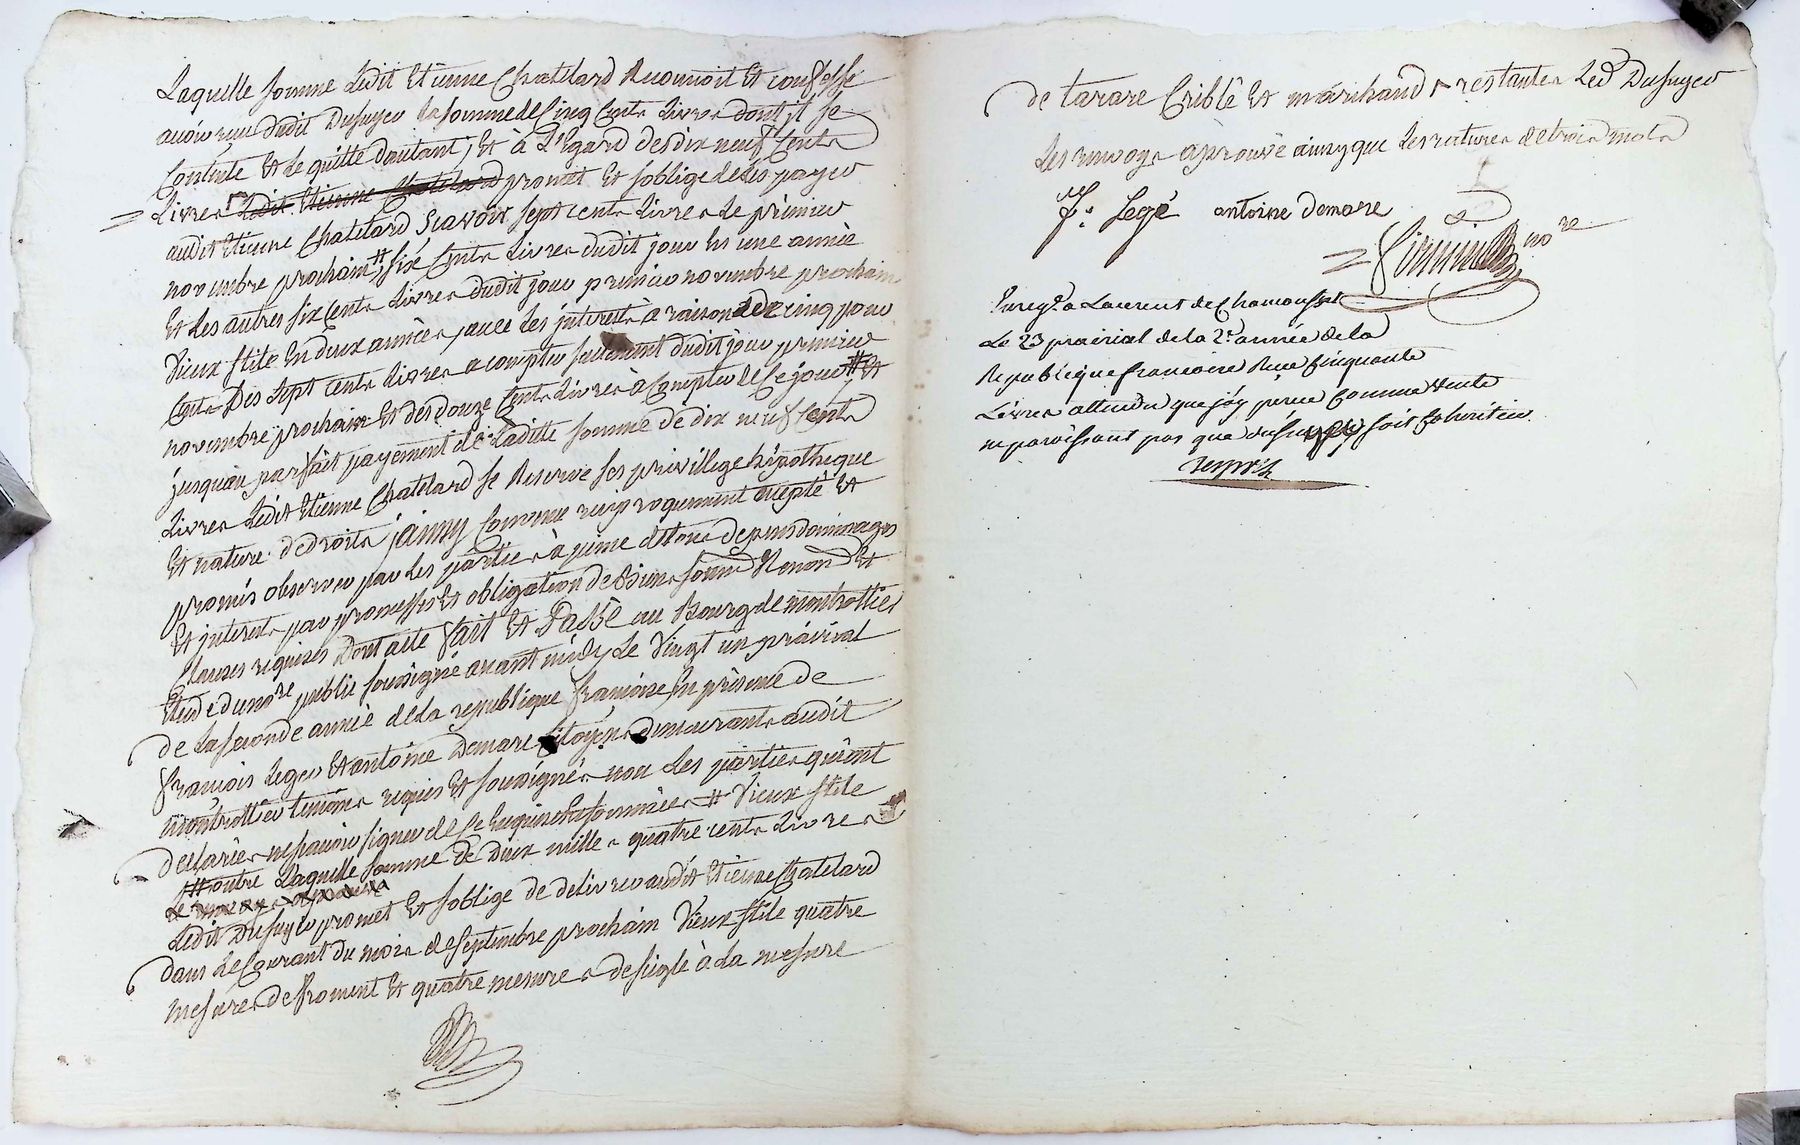 Laquelle somme Ledit Etienne Chatelard Reconnoit et confesse
avoir reçu dudit Dusuyer la somme de Cinq Cents Livres dont il se
Contente et le quitte d'autant, et à l'Egard des dix neuf Cents
Livres Ledit Etienne Chatelard promet et s'oblige de les payer
audit Etienne Chatelard Scavoir sept cents Livres le premier
novembre prochain # six Cents Livres dudit jour en une année
et les autres six Cents Livres dudit jour premier novembre prochain
Vieux stile en deux années, avec les interets à raison de cinq pour
Cent Des Sept cents Livres a compter seulement dudit jour premier
novembre prochain et des douze Cents Livres à Compter de Ce jour # et
jusqu'au parfait payement de Laditte somme de dix neuf Cents
Livres Ledit Etienne Chatelard se Reserve ses privillege hipotheque
et nature de droits jainsy Convenu reciproquement accepté et
promis observer par les parties à peine de tous depens dommages
et interets par promesses et obligation de Biens soumis Renond et
Clauses requises Dont acte fait et Passé au Bourg de montrottier
Etude du nore public soussigné avant midy le Vingt un prairial
de la seconde année de la republique francoise En presence de
francois leger et antoine Demare Citoyens demeurants audit
montrottier temoins requis et soussignés non les parties qui ont
declarées ne savoir signer de Ce Enquises et sommées # Vieux stile
# outre Laquelle somme de Deux milles quatre cents Livres
Ledit Dusuyer promet et s'oblige de delivrer audit Etienne Chatelard
dans le Courant du mois de septembre prochain Vieux stile quatre
mesures de froment et quatre mesures de seigle à la mesure
de tarare Criblé et marchand restantes Led Dusuyer
Les renvoys aprouvé ainsy que les ratures de trois mots
f. Legé antoine demare
nore
Enregé a Laurent de Chamousset
Le 23 prairial de la 2e année de la
Republique francoise Reçu Cinquante
Livres attendu que j'ay perçu Comme vente
ne paroissant pas que dusuyer soit Coheritier.